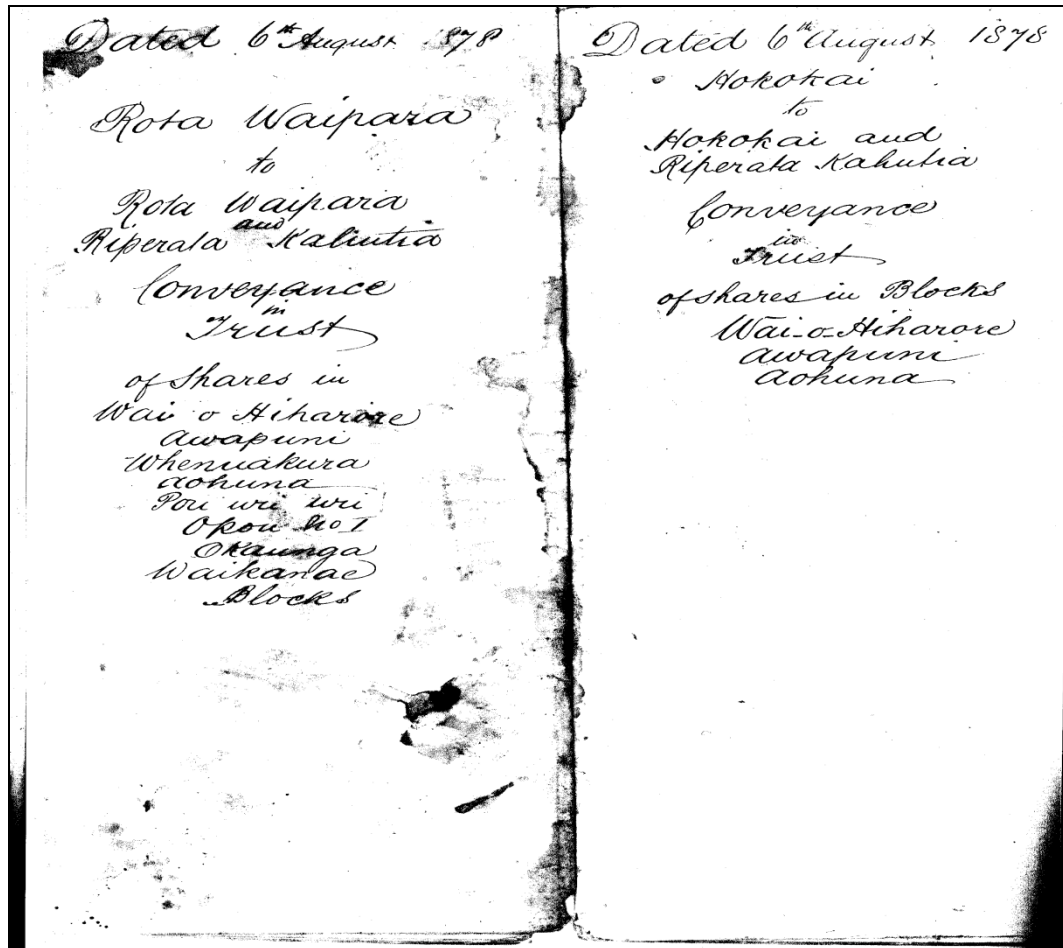 Dated 6th August 1878
Rota Waipara
to
Rota Waipara
and
Riperata Kahutia
Conveyance
in
Trust
of shares in
Wai o Hiharore
Awapuni
Whenuakura
Aohuna
Pou wi wi
Opou No 1
Okaunga
Waikanae
Blocks
Dated 6th August 1878
Hokokai
to
Hokokai and
Riperata Kahutia
Conveyance
in
Trust
of shares in Blocks
Wai-o-Hiharore
Awapuni
Aohuna